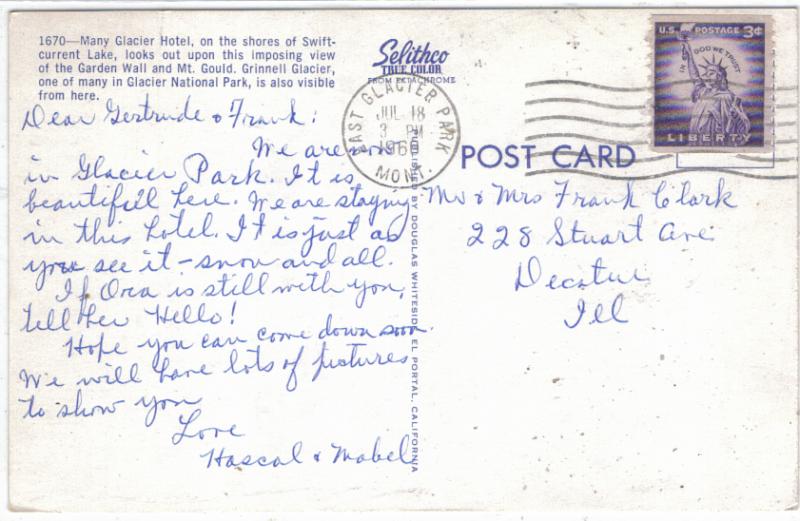 1670—Many Glacier Hotel, on the shores of Swift-
current Lake, looks out upon this imposing view
of the Garden Wall and Mt. Gould. Grinnell Glacier,
one of many in Glacier National Park, is also visible
from here.
Selithco
TRUE COLOR
FROM EKTACHROME
EAST GLACIER PARK
JUL 18
3 PM
MONT.
U.S. POSTAGE 3¢
IN GOD WE TRUST
LIBERTY
POST CARD
Dear Gertrude & Frank:
We are now
in Glacier Park. It is
beautiful here. We are staying
in this hotel. It is just as
you see it - snow and all.
If Ora is still with you,
tell her Hello!
Hope you can come down soon.
We will have lots of pictures
to show you
Love
Hascal & Mabel
Mr & Mrs Frank Clark
228 Stuart Ave.
Decatur
Ill
PUBLISHED BY DOUGLAS WHITESIDE, EL PORTAL, CALIFORNIA